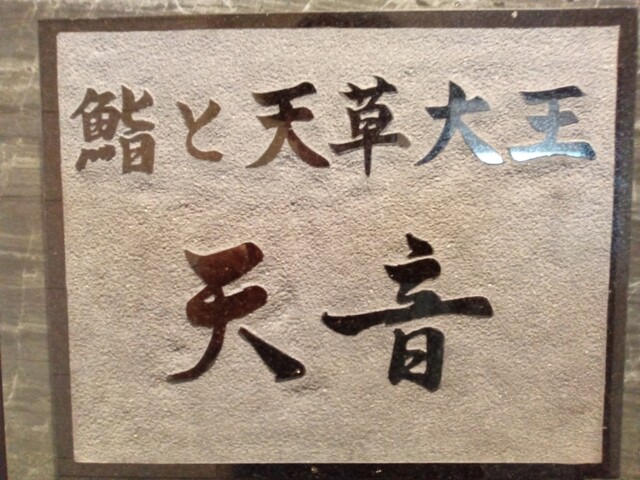 鮨と天草大王
天音